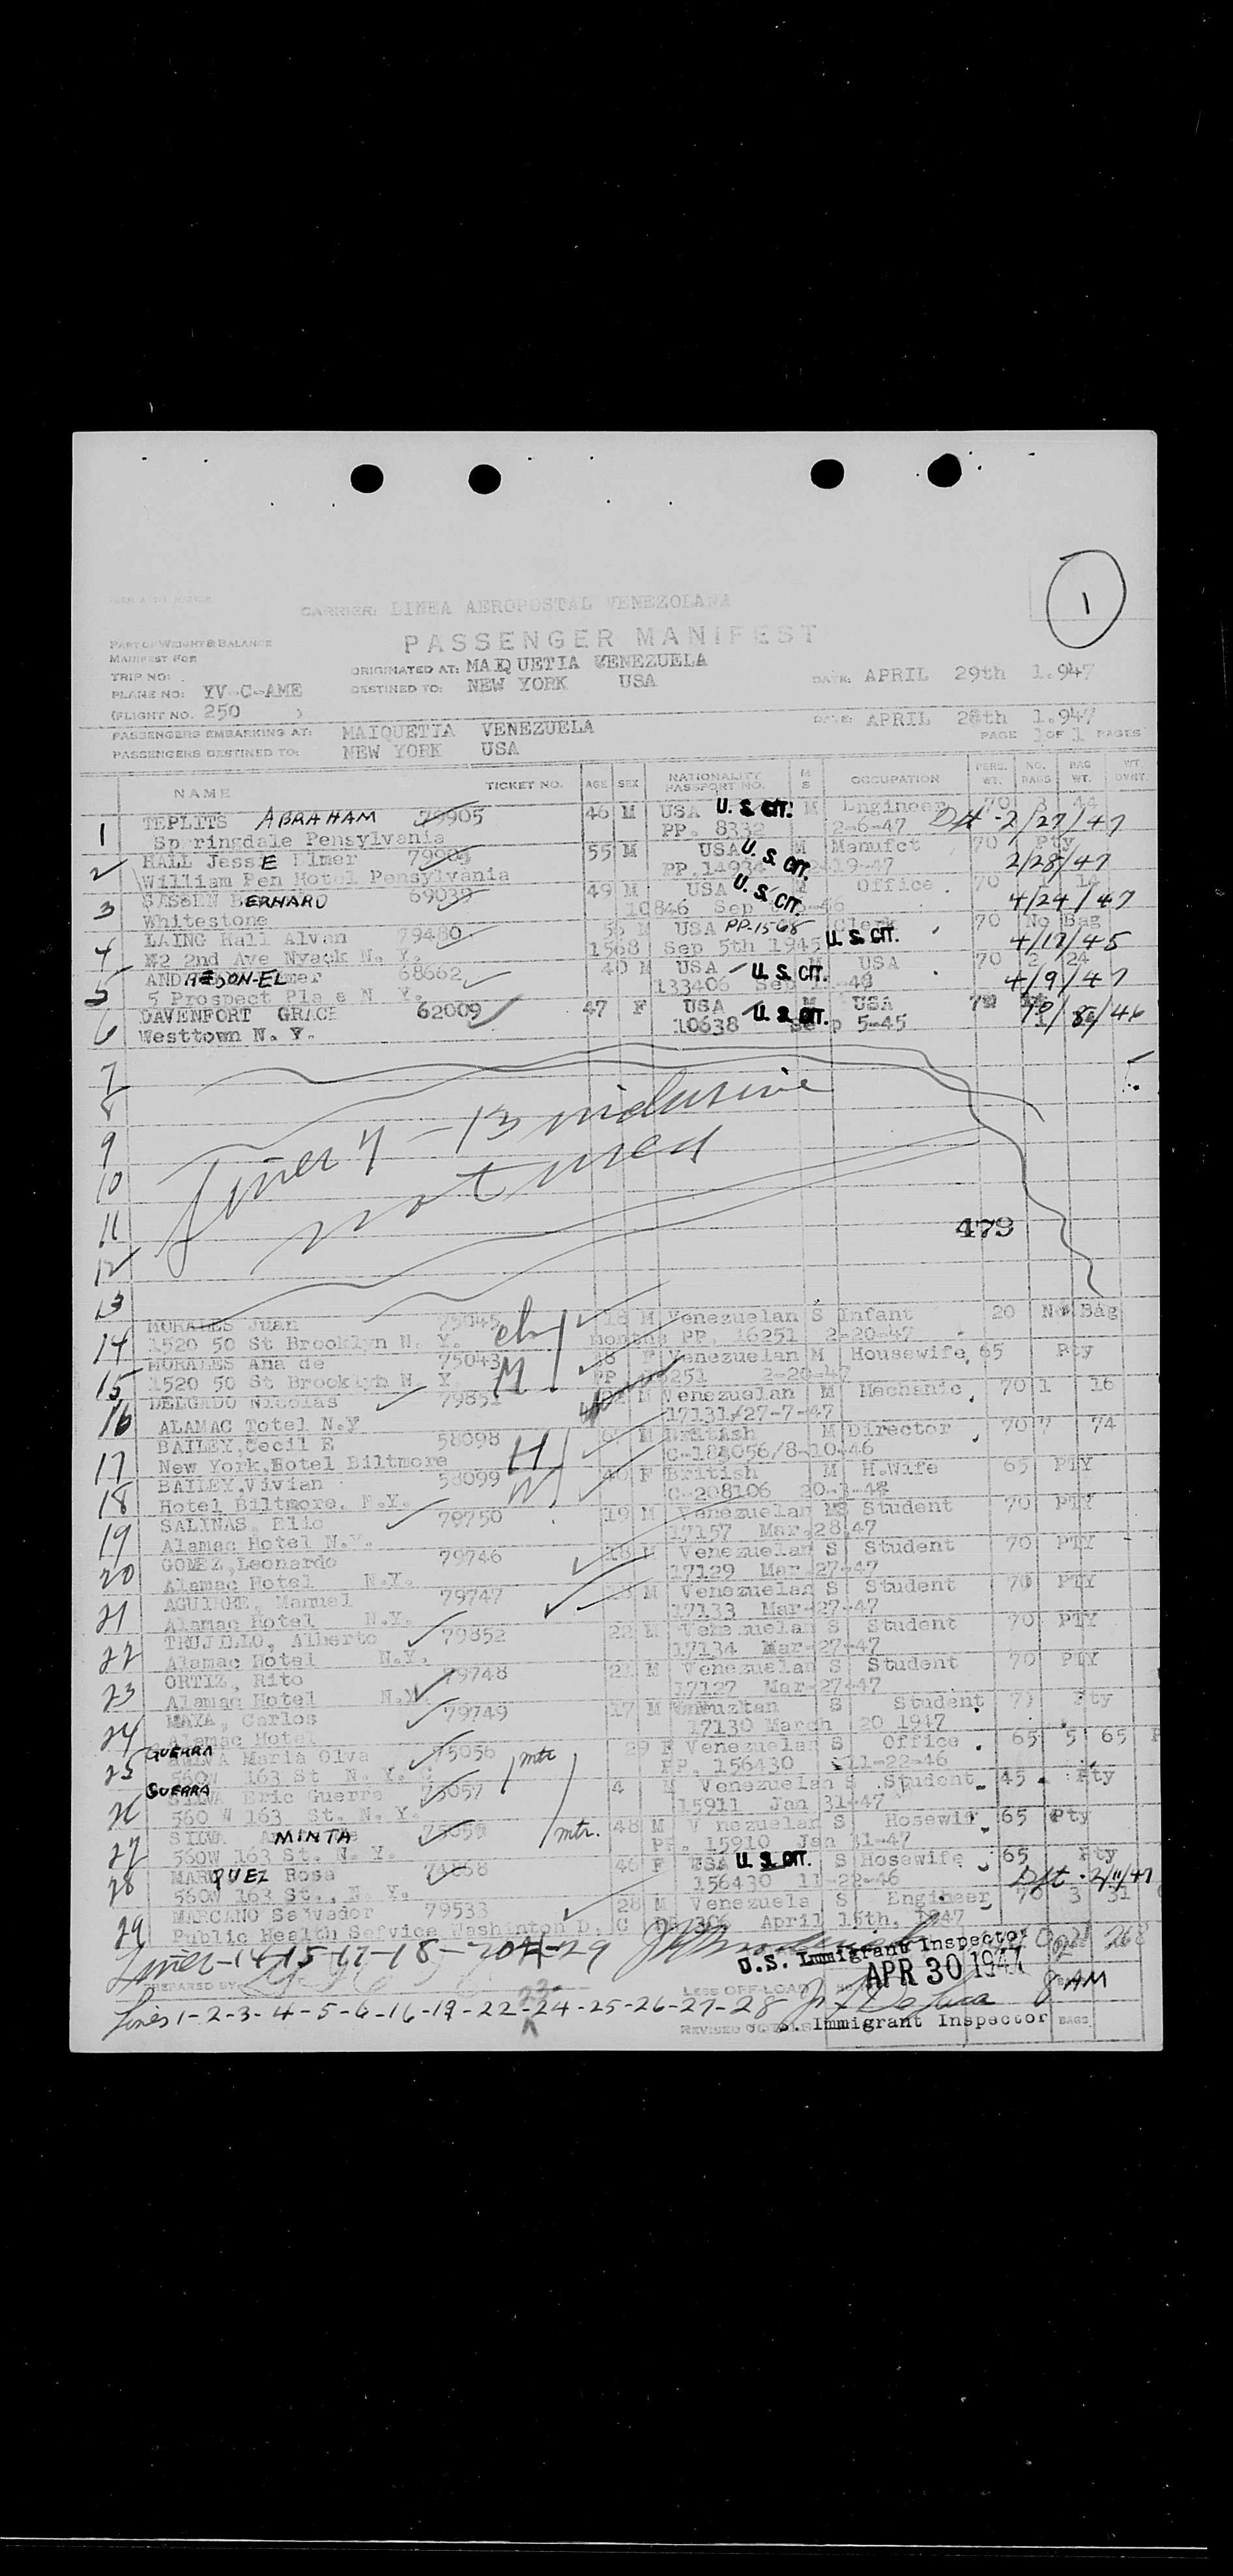 1
CARRIER: LINEA AEROPOSTAL VENEZOLANA
PASSENGER MANIFEST
PART OF WEIGHT & BALANCE
MANIFEST FOR
TRIP NO:
ORIGINATED AT: MAIQUETIA VENEZUELA DATE: APRIL 29th 1.947
PLANE NO: YV-C-AME DESTINED TO: NEW YORK USA
(FLIGHT NO. 250 )
PASSENGERS EMBARKING AT: MAIQUETIA VENEZUELA DATE: APRIL 1.947
PASSENGERS DESTINED TO: NEW YORK USA PAGE 1 OF 1 PAGES
NAME TICKET NO. AGE SEX NATIONALITY PASSPORT NO. M S OCCUPATION PERS. WT. NO. BAGS BAG WT. WT OVHT.
1 TEPLITS ABRAHAM 79905 46 M USA U.S. CIT. M Engineer 70 3 44
Springdale Pensylvania PP. 8332 2-6-47 2/27/47
2 HALL JessE Elmer 55 M USA U.S. CIT. M Manufct 70 Pty
William Pen Hotel Pensylvania PP.14934 2/28/47
3 SASSEN BERHARD 69039 49 M USA U.S. CIT. Office 70 1
Whitestone 10846 Sep 4/24/47
4 LAING Hall Alvan 79480 USA PP-1568 Clerk 70 No Bag
W2 2nd Ave Nyack N. Y. 1568 Sep 5th 1945 U.S. CIT. 4/17/45
5 68662 40 M USA U.S. CIT. USA 70 2 24
5 Prospect Pla e N Y. 133406 4/9/47
6 DAVENFORT GRACE 62009 47 F USA U.S. CIT. M USA
Westtown N. Y. 10638 Sep 5-45
7
8
9 Lines 7 - 13 inclusive
10 not used
11 479
12
13
14 MORALES Juan 75045 18 M Venezuelan S Infant 20 No Bag
1520 50 St Brooklyn N. Y. months PP. 16251 2-20-47
15 MORALES Ana de 75043 F Venezuelan M Housewife 65 Pty
1520 50 St Brooklyn N. Y. 2-20-47
16 DELGADO Nicolas 79851 M Venezuelan M Mechanic 70 1 16
ALAMAC Totel N.y 17131/27-7-47
17 BAILEY,Cecil E 58098 H M British M Director 70 7 74
New York,Hotel Biltmore C-184056/8-10-46
18 BAILEY,Vivian 58099 W 40 F British M H.Wife 65 PTY
Hotel Biltmore, N.Y. C-208106
19 SALINAS, Elio 79750 19 M Venezuelan S Student 70 PTY
Alamac Hotel N.Y. 17157 Mar-28-47
20 GOMEZ,Leonardo 79746 18 M Venezuelan S Student 70 PTY
Alamac Hotel N.Y. 17129 Mar-27-47
21 AGUIRRE, Manuel 79747 18 M Venezuelan S Student 70 PTY
Alamac Hotel N.Y. 17133 Mar-27-47
22 TRUJILLO, Alberto 79852 22 M Venezuelan S Student 70 PTY
Alamac Hotel N.Y. 17134 Mar-27-47
23 ORTIZ, Rito 79748 21 M Venezuelan S Student 70 PTY
Alamac Hotel N.Y. 17127 Mar-27-47
24 MAYA, Carlos 79749 17 M S Student Pty
Alamac Hotel 17130 March 20 1947
25 GUERRA SILVA Maria Olva 75056 mtr 29 F Venezuelan S Office 65 5 65
560W 163 St N. Y. PP. 156430 11-22-46
26 GUERRA SILVA Eric Guerra 75057 4 M Venezuelan S Student 45 Pty
560 W 163 St. N. Y. 15911 Jan 31-47
27 SILVA MINTA mtr. 48 M V nezuelan S Hosewif 65 Pty
560W 163 St. N. Y. PP. 15910 Jan 31-47
28 MARQUEZ Rosa 46 F USA U.S. CIT. S Hosewife 65 Pty
560W 163 St., N. Y. 156430 11-22-46 2/11/47
29 MARCANO Salvador 79533 28 M Venezuela S Engineer 70 3 31
Public Health Service Washinton D. C April 15th, 1947
Lines-14-15-17-18-20 -29
U.S. Immigrant Inspector
PREPARED BY LESS OFF-LOAD APR 30 1947 8 AM
Lines 1-2-3-4-5-6-16-19-22-23-24-25-26-27-28
REVISED Immigrant Inspector BAGS